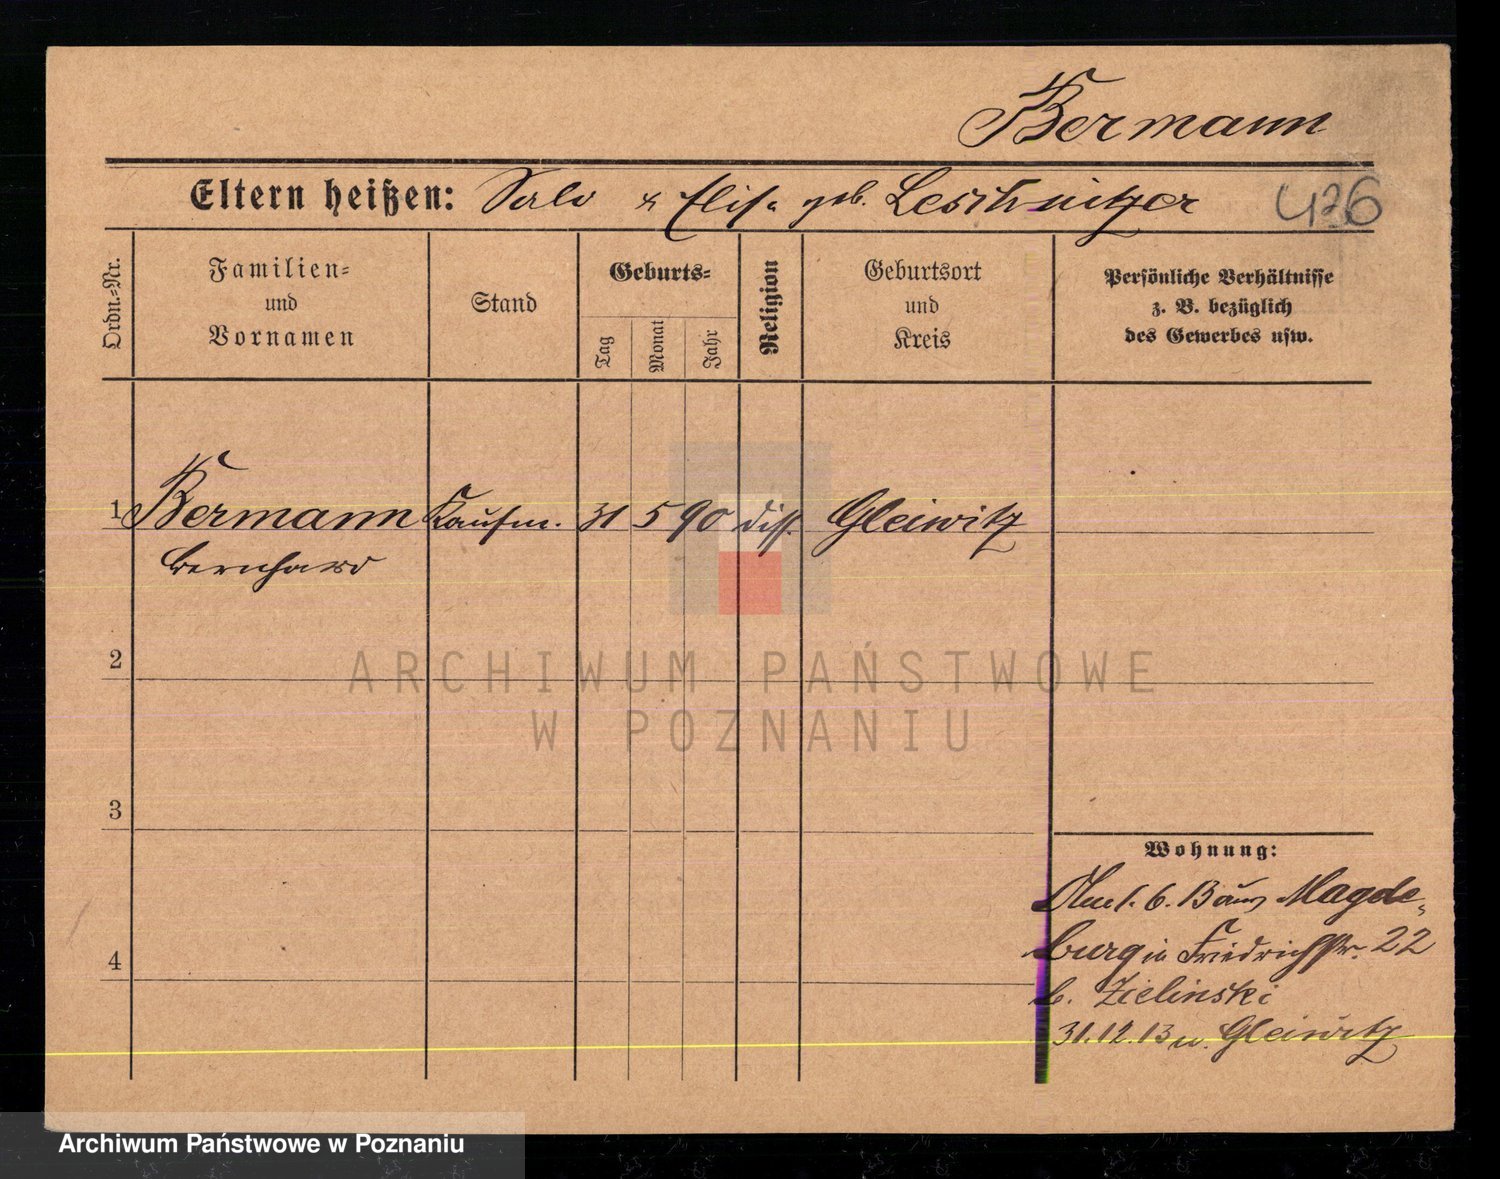 Bermann
Eltern heißen: Salo & Elise geb. Leschnitzer 426
Ordn.=Nr.
Familien=
und
Vornamen
Stand
Geburts=
Tag
Monat
Jahr
Religion
Geburtsort
und
Kreis
Persönliche Verhältnisse
z. B. bezüglich
des Gewerbes usw.
1 Bermann Kaufm. 31 5 90 diss. Gleiwitz
Bernhard
2
3
4
Wohnung:
1. 6. 13 aus Magde-
burg in Friedrichstr. 22
b. Zielinski
31.12.13 n. Gleiwitz
ARCHIWUM PAŃSTWOWE
W POZNANIU
Archiwum Państwowe w Poznaniu